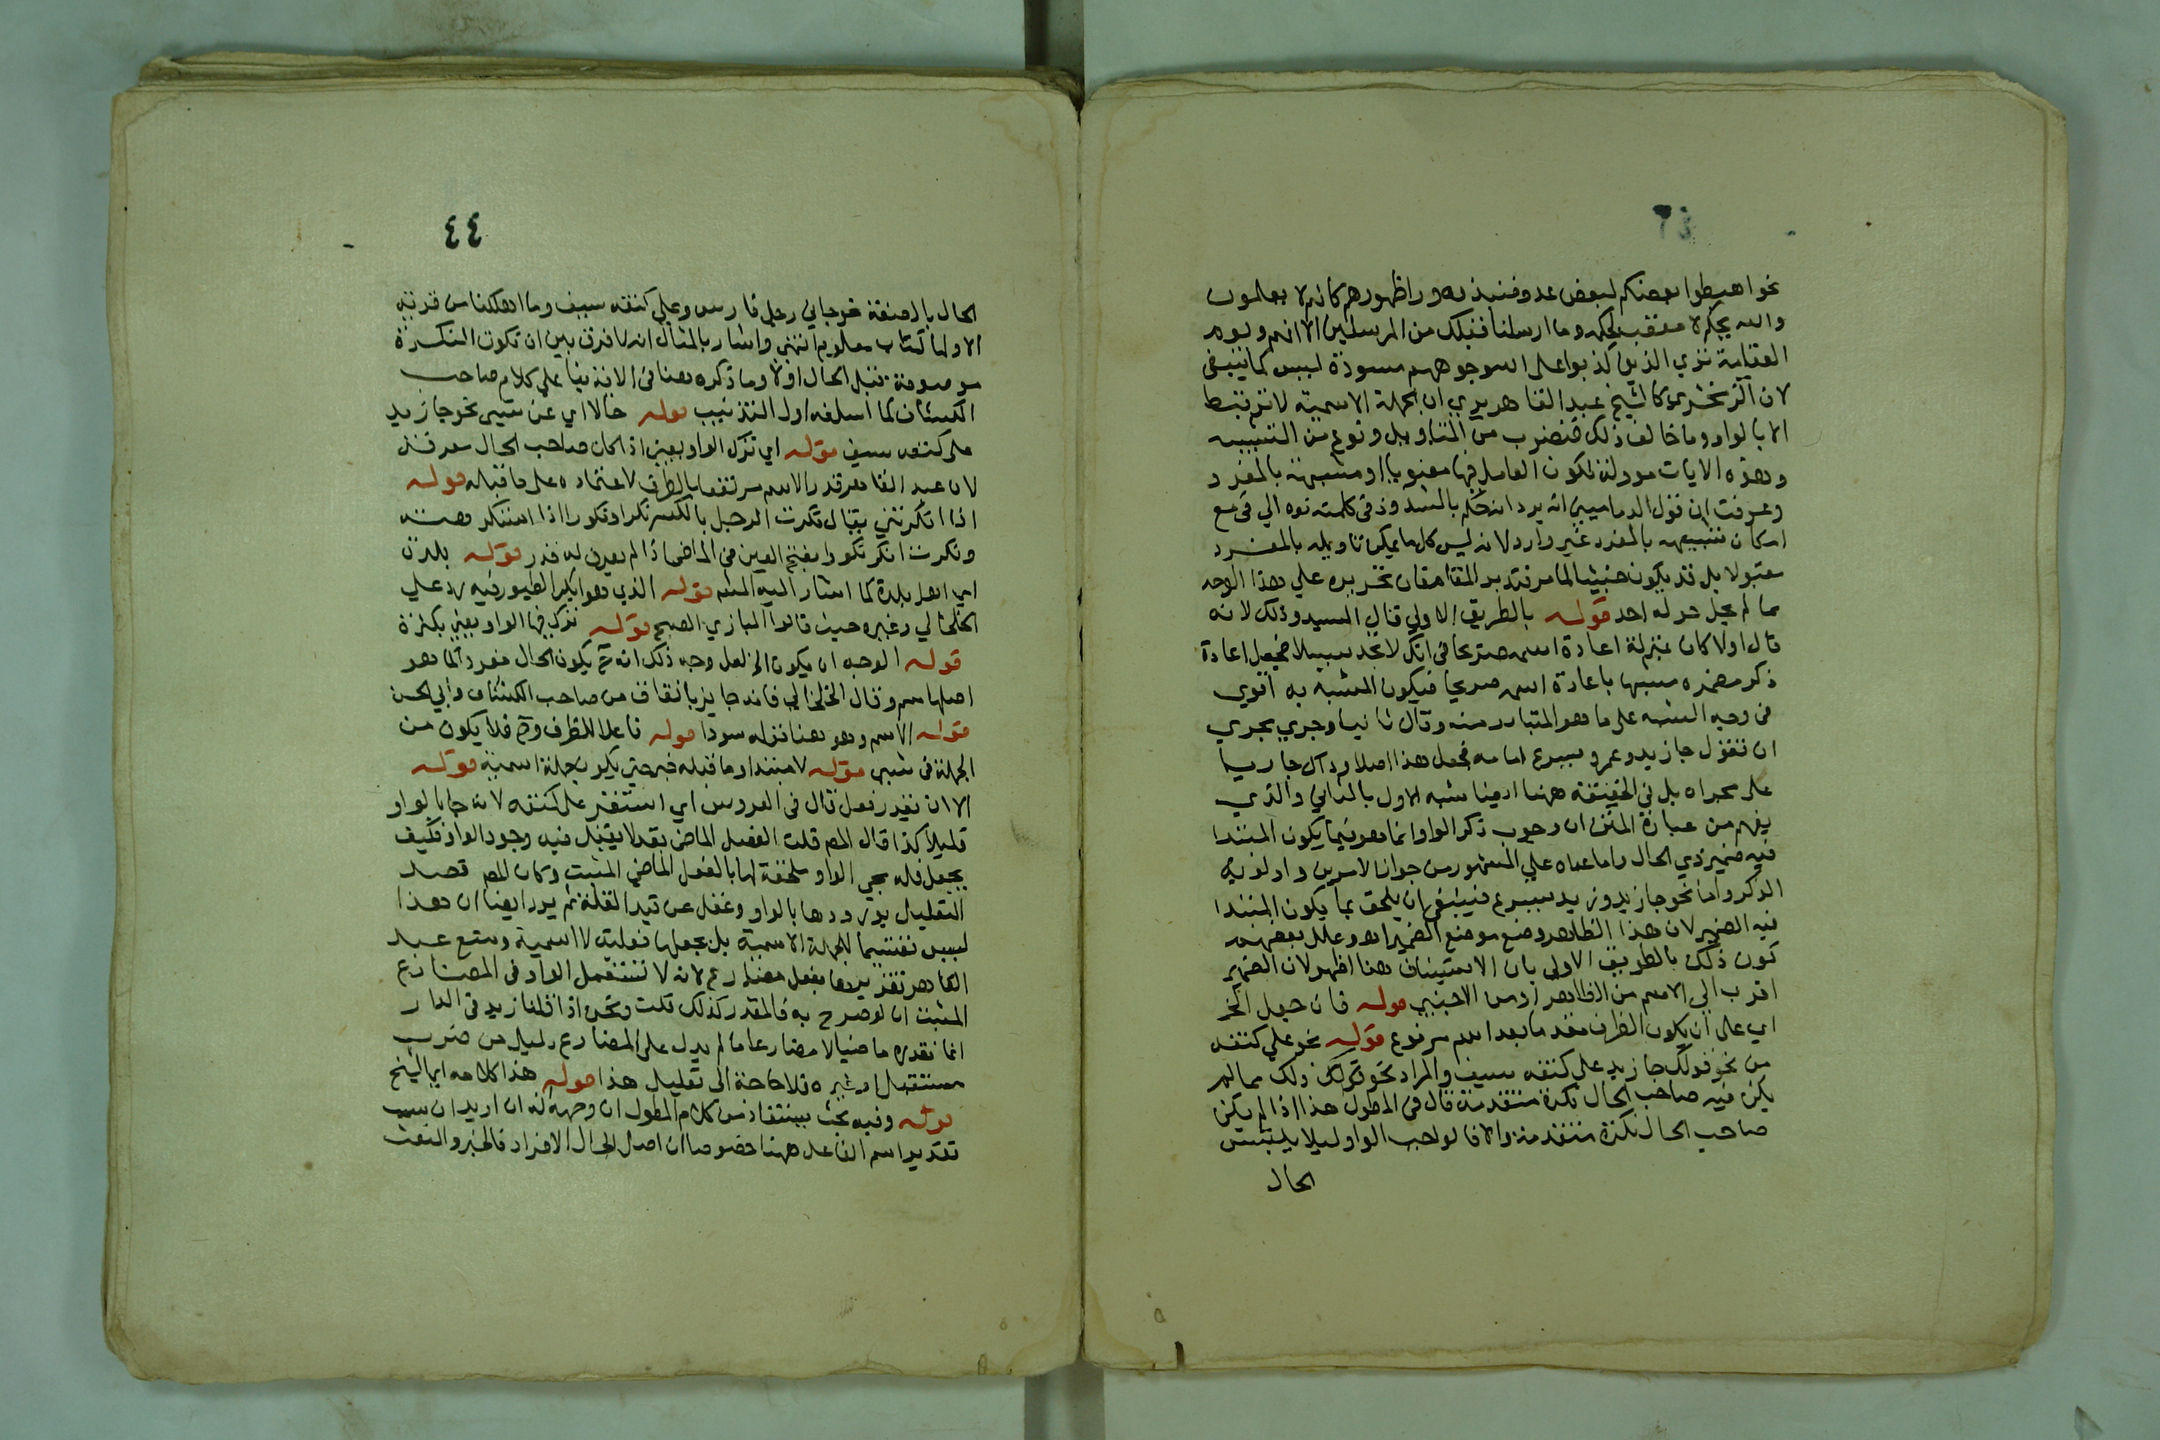 ٤٣
نحو اهبطوا بعضكم لبعض عدو فنبذوه وراظهورهم كانهم لا يعلمون
والله يحكم لا معقب لحكمه وما ارسلنا قبلك من المرسلين الا انهم ويوم
القيامة تري الذين كذبوا على الله وجوههم مسودة ليس كما ينبغي
لان الزمخشري كالشيخ عبد القاهر يري ان الجملة الاسمية لا ترتبط
الا بالواو وما خالف ذلك فضرب من التاويل ونوع من التشبيه
وهذه الايات مولة لكون العامل فيها معنويا او مشبهة بالمفرد
وعرفت ان قول الدماميني انه يرد انه حكم بالشذوذ في كلمته فوه الي في مع
امكان تشبيهه بالمفرد غير وارد لانه ليس كل ما يمكن تاويله بالمفرد
مقبولا بل قد يكون خبيثا لما مر فتدبر المقام فان تحريره علي هذا الوجه
مما لم يحل حوله احد قوله بالطريق الاولي قال السيد وذلك لانه
قال اولا كان بمنزلة اعادة اسمه صريحا في انك لا تجد سبيلا فجعل اعادة
ذكر مضمره مشبها باعادة اسمه صريحا فيكون المشبه به اقوي
في وجه الشبه على ما هو المتبادر منه وقال ثانيا وجري مجري
ان تقول جا زيد وعمرو يسرع امامه فجعل هذا اصلا وذاك جاريا
على مجراه بل في الحقيقة ههنا ايضا شبه الاول بالثاني والذي
يفهم من عبارة المتن ان وجوب ذكر الواو انما هو فيما يكون المبتدا
فيه ضمير ذي الحال واما عداه علي المشهور من جواز الامرين واولوية
الذكر واما نحو جا زيد وزيد يسرع فينبغي ان يلحق بما يكون المبتدا
فيه الضمير لان هذا الظاهر وضع موضع الضمير اهـ وعلل بعضهم
كون ذلك بالطريق الاولي بان الاستيناف هنا اظهر لان الضمير
اقرب الي الاسم من الظاهر ومن الاجنبي قوله فان جعل الخ
اي على ان يكون الظرف مقدما بعد اسم مرفوع قوله نحو علي كتفه
من نحو قولك جا زيد علي كتفه سيف والمراد نحو قولك ذلك مما لم
يكن فيه صاحب الحال نكرة متقدمة قال في المطول هذا اذا لم يكن
صاحب الحال نكرة متقدمة والا فالواجب الواو ليلا يلتبس
الحال
٤٤
الحال بالصفة نحو جاني رجل فارس وعلي كتفه سيف وما اهلكنا من قرية
الا ولها كتاب معلوم انتهي واشار بالمثال انه لا فرق بين ان تكون النكرة
موصوفة قبل الحال اولا وما ذكره هنا في الاية بنا علي كلام صاحب
الكشاف كما اسلفه اول التذنيب قوله حالا اي عن شيي نحو جا زيد
على كتفه سيف قوله اي ترك الواو يعني اذا كان صاحب الحال معرفة
لان عبد القاهر قدر الاسم مرتفعا بالظرف لاعتماده على ما قبله قوله
اذا انكرتني يقال نكرت الرجل بالكسر نكرا ونكورا اذا استنكرته
ونكرت انكر نكورا بفتح العين في الماضي اذا لم يعرف له قدر قوله بلدة
اي اهل بلدة كما اشار اليه الشم قوله الذي هو ابكر الطيور فيه رد علي
الخلخالي وغيره حيث قالوا البازي الصبح قوله ترك فيها الواو يعني بكثرة
قوله الوجه ان يكون الخ لعل وجه ذلك انه ح يكون الحال مفردا كما هو
اصلها سم وقال الخلخالي فانه جايز باتفاق من صاحب الكشاف وابي الحسن
قوله الاسم وهو هنا قوله سودا قوله فاعلا للظرف وح فلا يكون من
الجملة في شيي قوله لا مبتدا وما قبله خبر حتي يكون جملة اسمية قوله
الا ان يقدر فعل قال في العروس اي استقر على كتفه لانه جا بالواو
قليلا كذا قال المص قلت الفعل الماضي بقد لا يقل فيه وجود الواو فكيف
يجعل قلة مجي الواو ملحقة لها بالفعل الماضي المثبت وكان المص قصد
التقليل بورودها بالواو وغفل عن قيد القلة ثم يرد ايضا ان هذا
ليس تقسيما للجملة الاسمية بل يجعلها فعلية لا اسمية ومنع عبد
القاهر تقديرها بفعل مضارع لانه لا تستعمل الواو في المضارع
المثبت ان لو صرح به فالمقدر كذلك قلت ونحن اذا قلنا زيد في الدار
انما نقدره ماضيا لا مضارعا ما لم يدل على المضارع دليل من ضرب
مستقبل او غيره فلا حاجة الى تعليل هذا قوله هذا كلامه اي الشيخ
قوله وفيه بحث يستفاد من كلام المطول ان وجهه انه ان اريد ان سبب
تقدير اسم الفاعل ههنا خصوصا ان اصل الحال الافراد فالخبر والنعت